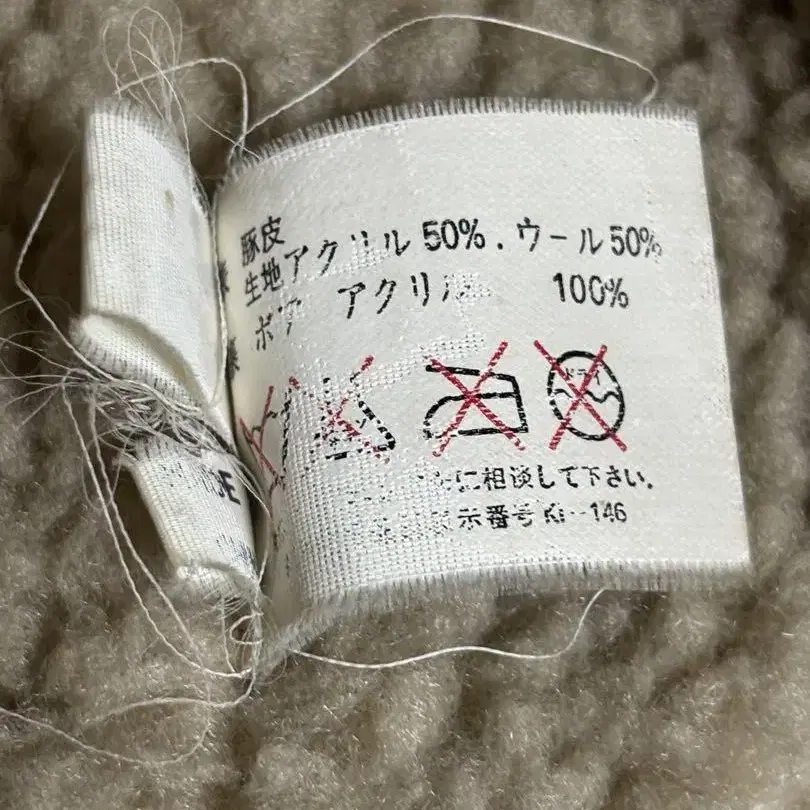 豚皮
生地アクリル 50%. ウール 50%
ボア アクリル 100%
ドライ
に相談して下さい.
示番号 KI-146